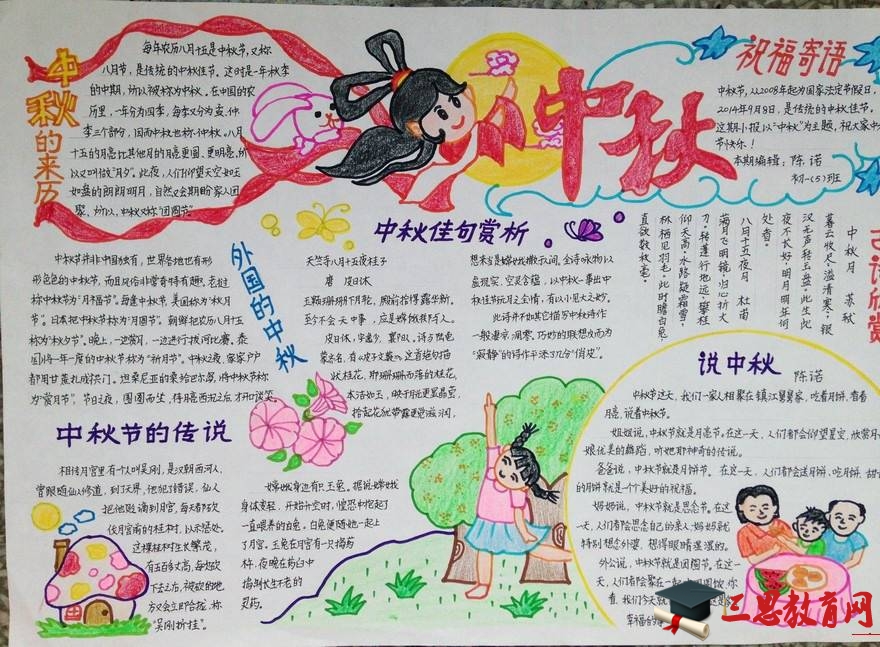 中秋的来历
每年农历八月十五是中秋节,又称
八月节,是传统的中秋佳节。这时是一年秋季
的中期,所以被称为中秋。在中国的农
历里,一年分为四季,每季又分为孟、仲、
季三个部分,因而中秋也称仲秋。八月
十五的月亮比其他月的月亮更圆、更明亮,所
以又叫做"月夕"。此夜,人们仰望天空如玉
如盘的朗朗明月,自然又会期盼家人团
聚。所以,中秋又称"团圆节"。
中秋
祝福寄语
中秋节,从2008年起为国家法定节假日,
2014年9月8日,是传统的中秋佳节。
这期小报以"中秋"为主题,祝大家中
节快乐!
本期编辑:陈诺
初一(5)班
外国的中秋
中秋节并非中国独有,世界各地也有形
形色色的中秋节,而且风俗非常奇特有趣。老挝
称中秋节为"月福节"。每逢中秋节
日本把中秋节称为"月圆节"。朝鲜把农历八月十五
称为"秋夕节"。晚上,一边赏月,一边进行拔河比赛。泰
国将一年一度的中秋节称为"祈月节"。中秋之夜,家家户户
都用甘蔗扎成拱门。
为"赏月节"。节日之夜,围圆而坐,待月亮西沉之后,才开口谈笑。
中秋佳句赏析
天竺寺八月十五夜桂子
唐 皮日休
玉颗珊珊下月轮,殿前拾得露华新。
至今不会天中事,应是嫦娥掷与人。
状桂花,那珊珊而落的桂花,
本洁如玉,映于月光更显晶莹,
拾起花光带露更觉滋润,
想来是嫦娥撒于人间。全诗咏物以
虚现实,空灵含蕴,以中秋一事出中
秋佳节玩月之金情,有以小见大之妙。
此诗并不如其它描写中秋诗作
一般凄凉、凋零。巧妙的联想反而为
"寂静"的诗作平添了几分"俏皮"。
古诗欣赏
中秋月 苏轼
暮云收尽溢清寒,银
汉无声转玉盘。此生此
夜不长好,明月明年何
处看。
八月十五夜月 杜甫
满月飞明镜,归心折大
刀。转蓬行地远,攀桂
仰天高。水路疑霜雪,
林栖见羽毛。此时瞻白兔,
直欲数秋毫。
中秋节的传说
相传月宫里有个人叫吴刚,是汉朝西河人,
曾跟随仙人修道,到了天界,他犯了错误,仙人
把他贬谪到月宫,每天都砍
伐月宫前的桂树,以示惩处。
这棵桂树生长繁茂,
有五百多丈高,每次砍
下去之后,被砍的地
方又会立即合拢,称
"吴刚折桂"。
嫦娥身边有只玉兔。据说嫦娥
身体变轻,开始升空时,惶恐中抱起了
一直喂养的白兔,白兔便随她一起上
了月宫。玉兔在月宫有一只捣药
杵,夜晚在药臼中
捣制长生不老的
灵药。
说中秋
陈诺
中秋节这天,我们一家人相聚在镇江舅舅家,吃着月饼,看着
月亮,说着中秋节。
姐姐说,中秋节就是月亮节。在这一天,人们都会仰望星空,欣赏
娥优美的舞蹈,听她那神奇的传说。
爸爸说,中秋节就是月饼节。在这一天,人们都会送月饼、吃月饼,甜
的月饼就是一个美好的祝福。
妈妈说,中秋节就是思念节。在这一
天,人们都会思念自己的亲人,妈妈就
特别想念外婆,想得眼睛湿湿的。
外公说,中秋节就是团圆节。在这一
天,人们都会聚在一起
看,我们今天就
幸福的
三思教育网